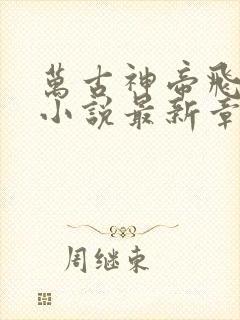 萬古神帝飛
小說最新章
周继東